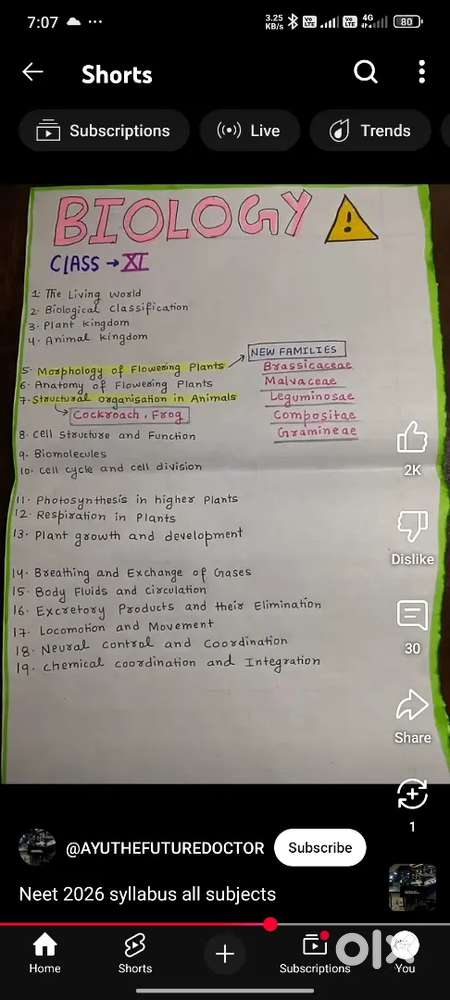 7:07
3.25 KB/s
VoLTE
VoLTE
4G
80
Shorts
Subscriptions
Live
Trends
BIOLOGY
!
CLASS → XI
1. The Living World
2. Biological Classification
3. Plant Kingdom
4. Animal Kingdom
NEW FAMILIES
5. Morphology of Flowering Plants
Brassicaceae
6. Anatomy of Flowering Plants
Malvaceae
7. Structural organisation in Animals
Leguminosae
Cockroach, Frog
Compositae
8. Cell Structure and Function
Gramineae
9. Biomolecules
10. Cell cycle and cell division
11. Photosynthesis in higher Plants
12. Respiration in Plants
13. Plant growth and development
14. Breathing and Exchange of Gases
15. Body Fluids and Circulation
16. Excretory Products and their Elimination
17. Locomotion and Movement
18. Neural control and Coordination
19. Chemical coordination and Integration
2K
Dislike
30
Share
1
@AYUTHEFUTUREDOCTOR
Subscribe
Neet 2026 syllabus all subjects
Home
Shorts
Subscriptions
You
olx